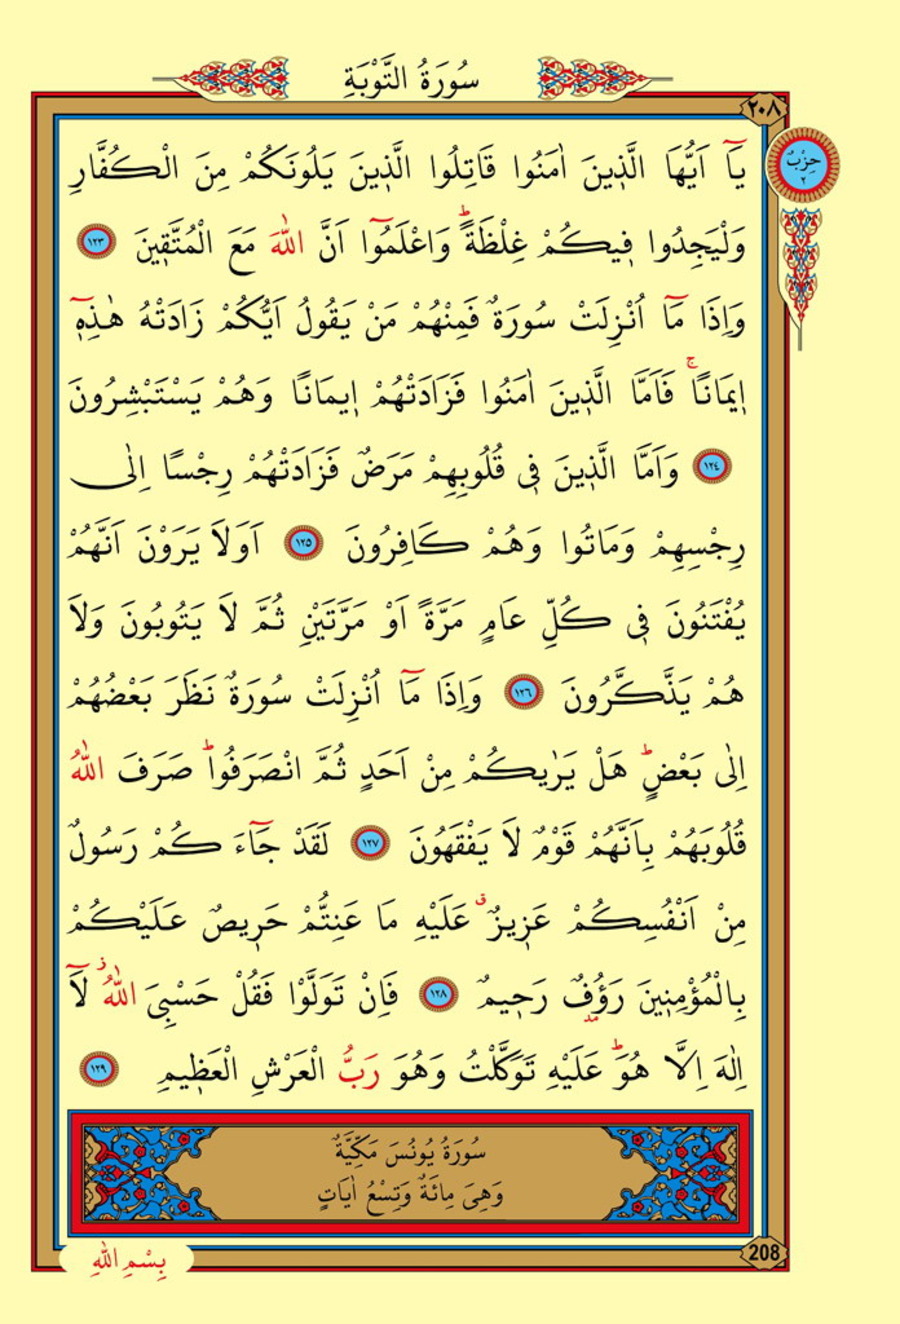 سُورَةُ التَّوْبَةِ
٢٠٨
حِزْبٌ
٢
يَٓا اَيُّهَا الَّذٖينَ اٰمَنُوا قَاتِلُوا الَّذٖينَ يَلُونَكُمْ مِنَ الْكُفَّارِ
وَلْيَجِدُوا فٖيكُمْ غِلْظَةًؕ وَاعْلَمُٓوا اَنَّ اللّٰهَ مَعَ الْمُتَّقٖينَ ﴿١٢٣﴾
وَاِذَا مَٓا اُنْزِلَتْ سُورَةٌ فَمِنْهُمْ مَنْ يَقُولُ اَيُّكُمْ زَادَتْهُ هٰذِهٖٓ
اٖيمَانًاۚ فَاَمَّا الَّذٖينَ اٰمَنُوا فَزَادَتْهُمْ اٖيمَانًا وَهُمْ يَسْتَبْشِرُونَ
﴿١٢٤﴾ وَاَمَّا الَّذٖينَ فٖى قُلُوبِهِمْ مَرَضٌ فَزَادَتْهُمْ رِجْسًا اِلٰى
رِجْسِهِمْ وَمَاتُوا وَهُمْ كَافِرُونَ ﴿١٢٥﴾ اَوَلَا يَرَوْنَ اَنَّهُمْ
يُفْتَنُونَ فٖى كُلِّ عَامٍ مَرَّةً اَوْ مَرَّتَيْنِ ثُمَّ لَا يَتُوبُونَ وَلَا
هُمْ يَذَّكَّرُونَ ﴿١٢٦﴾ وَاِذَا مَٓا اُنْزِلَتْ سُورَةٌ نَظَرَ بَعْضُهُمْ
اِلٰى بَعْضٍؕ هَلْ يَرٰيكُمْ مِنْ اَحَدٍ ثُمَّ انْصَرَفُواؕ صَرَفَ اللّٰهُ
قُلُوبَهُمْ بِاَنَّهُمْ قَوْمٌ لَا يَفْقَهُونَ ﴿١٢٧﴾ لَقَدْ جَٓاءَ كُمْ رَسُولٌ
مِنْ اَنْفُسِكُمْ عَزٖيزٌۗ عَلَيْهِ مَا عَنِتُّمْ حَرٖيصٌ عَلَيْكُمْ
بِالْمُؤْمِنٖينَ رَؤُفٌ رَحٖيمٌ ﴿١٢٨﴾ فَاِنْ تَوَلَّوْا فَقُلْ حَسْبِىَ اللّٰهُؗ لَٓا
اِلٰهَ اِلَّا هُوَؕ عَلَيْهِ تَوَكَّلْتُ وَهُوَ رَبُّ الْعَرْشِ الْعَظٖيمِ ﴿١٢٩﴾
سُورَةُ يُونُسَ مَكِّيَّةٌ
وَهِىَ مِائَةٌ وَتِسْعُ اٰيَاتٍ
208
بِسْمِ اللّٰهِ